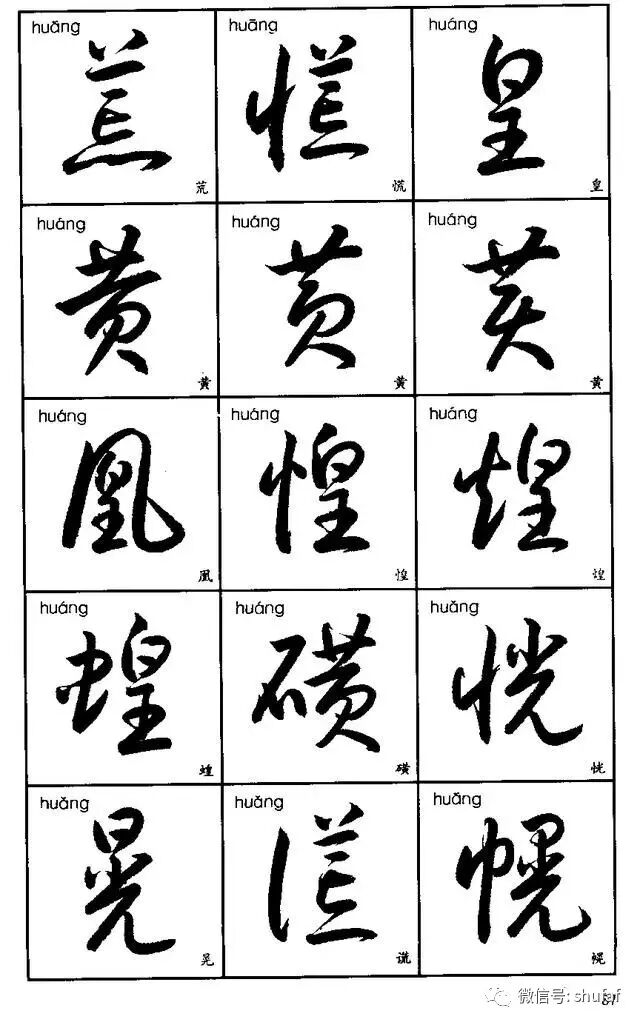 huǎng huāng huáng
荒 慌 皇
荒 慌 皇
huáng huáng huáng
黄 黄 黄
黄 黄 黄
huáng huáng huáng
凰 惶 煌
凰 惶 煌
huáng huáng huǎng
蝗 磺 恍
蝗 磺 恍
huǎng huǎng huǎng
晃 谎 幌
晃 谎 幌
微信号: shufaf
81